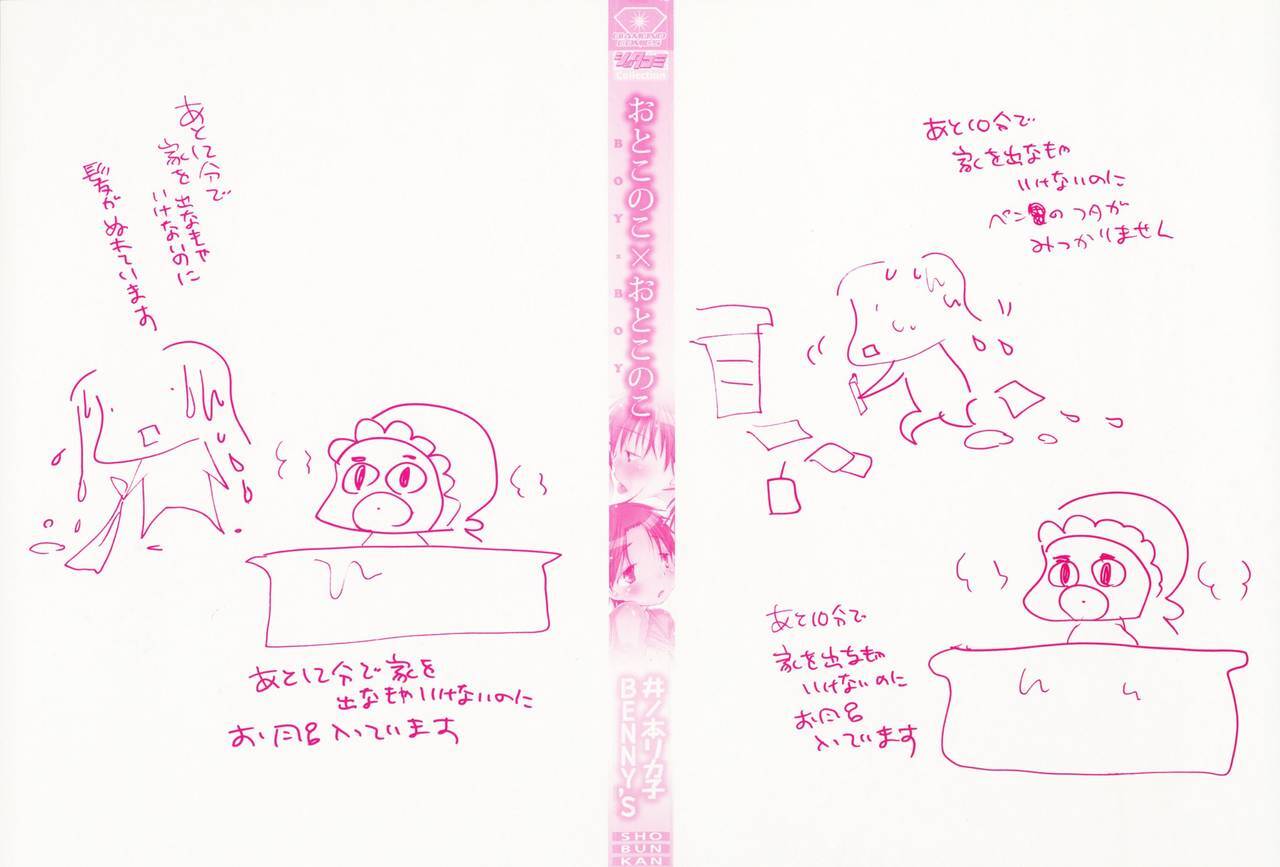 あと10分で
家を出なきゃ
いけないのに
ペンのフタが
みつかりません
あと10分で
家を出なきゃ
いけないのに
お風呂
入っています
DIAMOND
COMICS
ショタコミ
Collection
おとこのこ×おとこのこ
BOY×BOY
井ノ本リカ子
BENNY'S
SHO
BUN
KAN
あと12分で
家を出なきゃ
いけないのに
髪がぬれています
あと12分で家を
出なきゃいけないのに
お風呂入っています